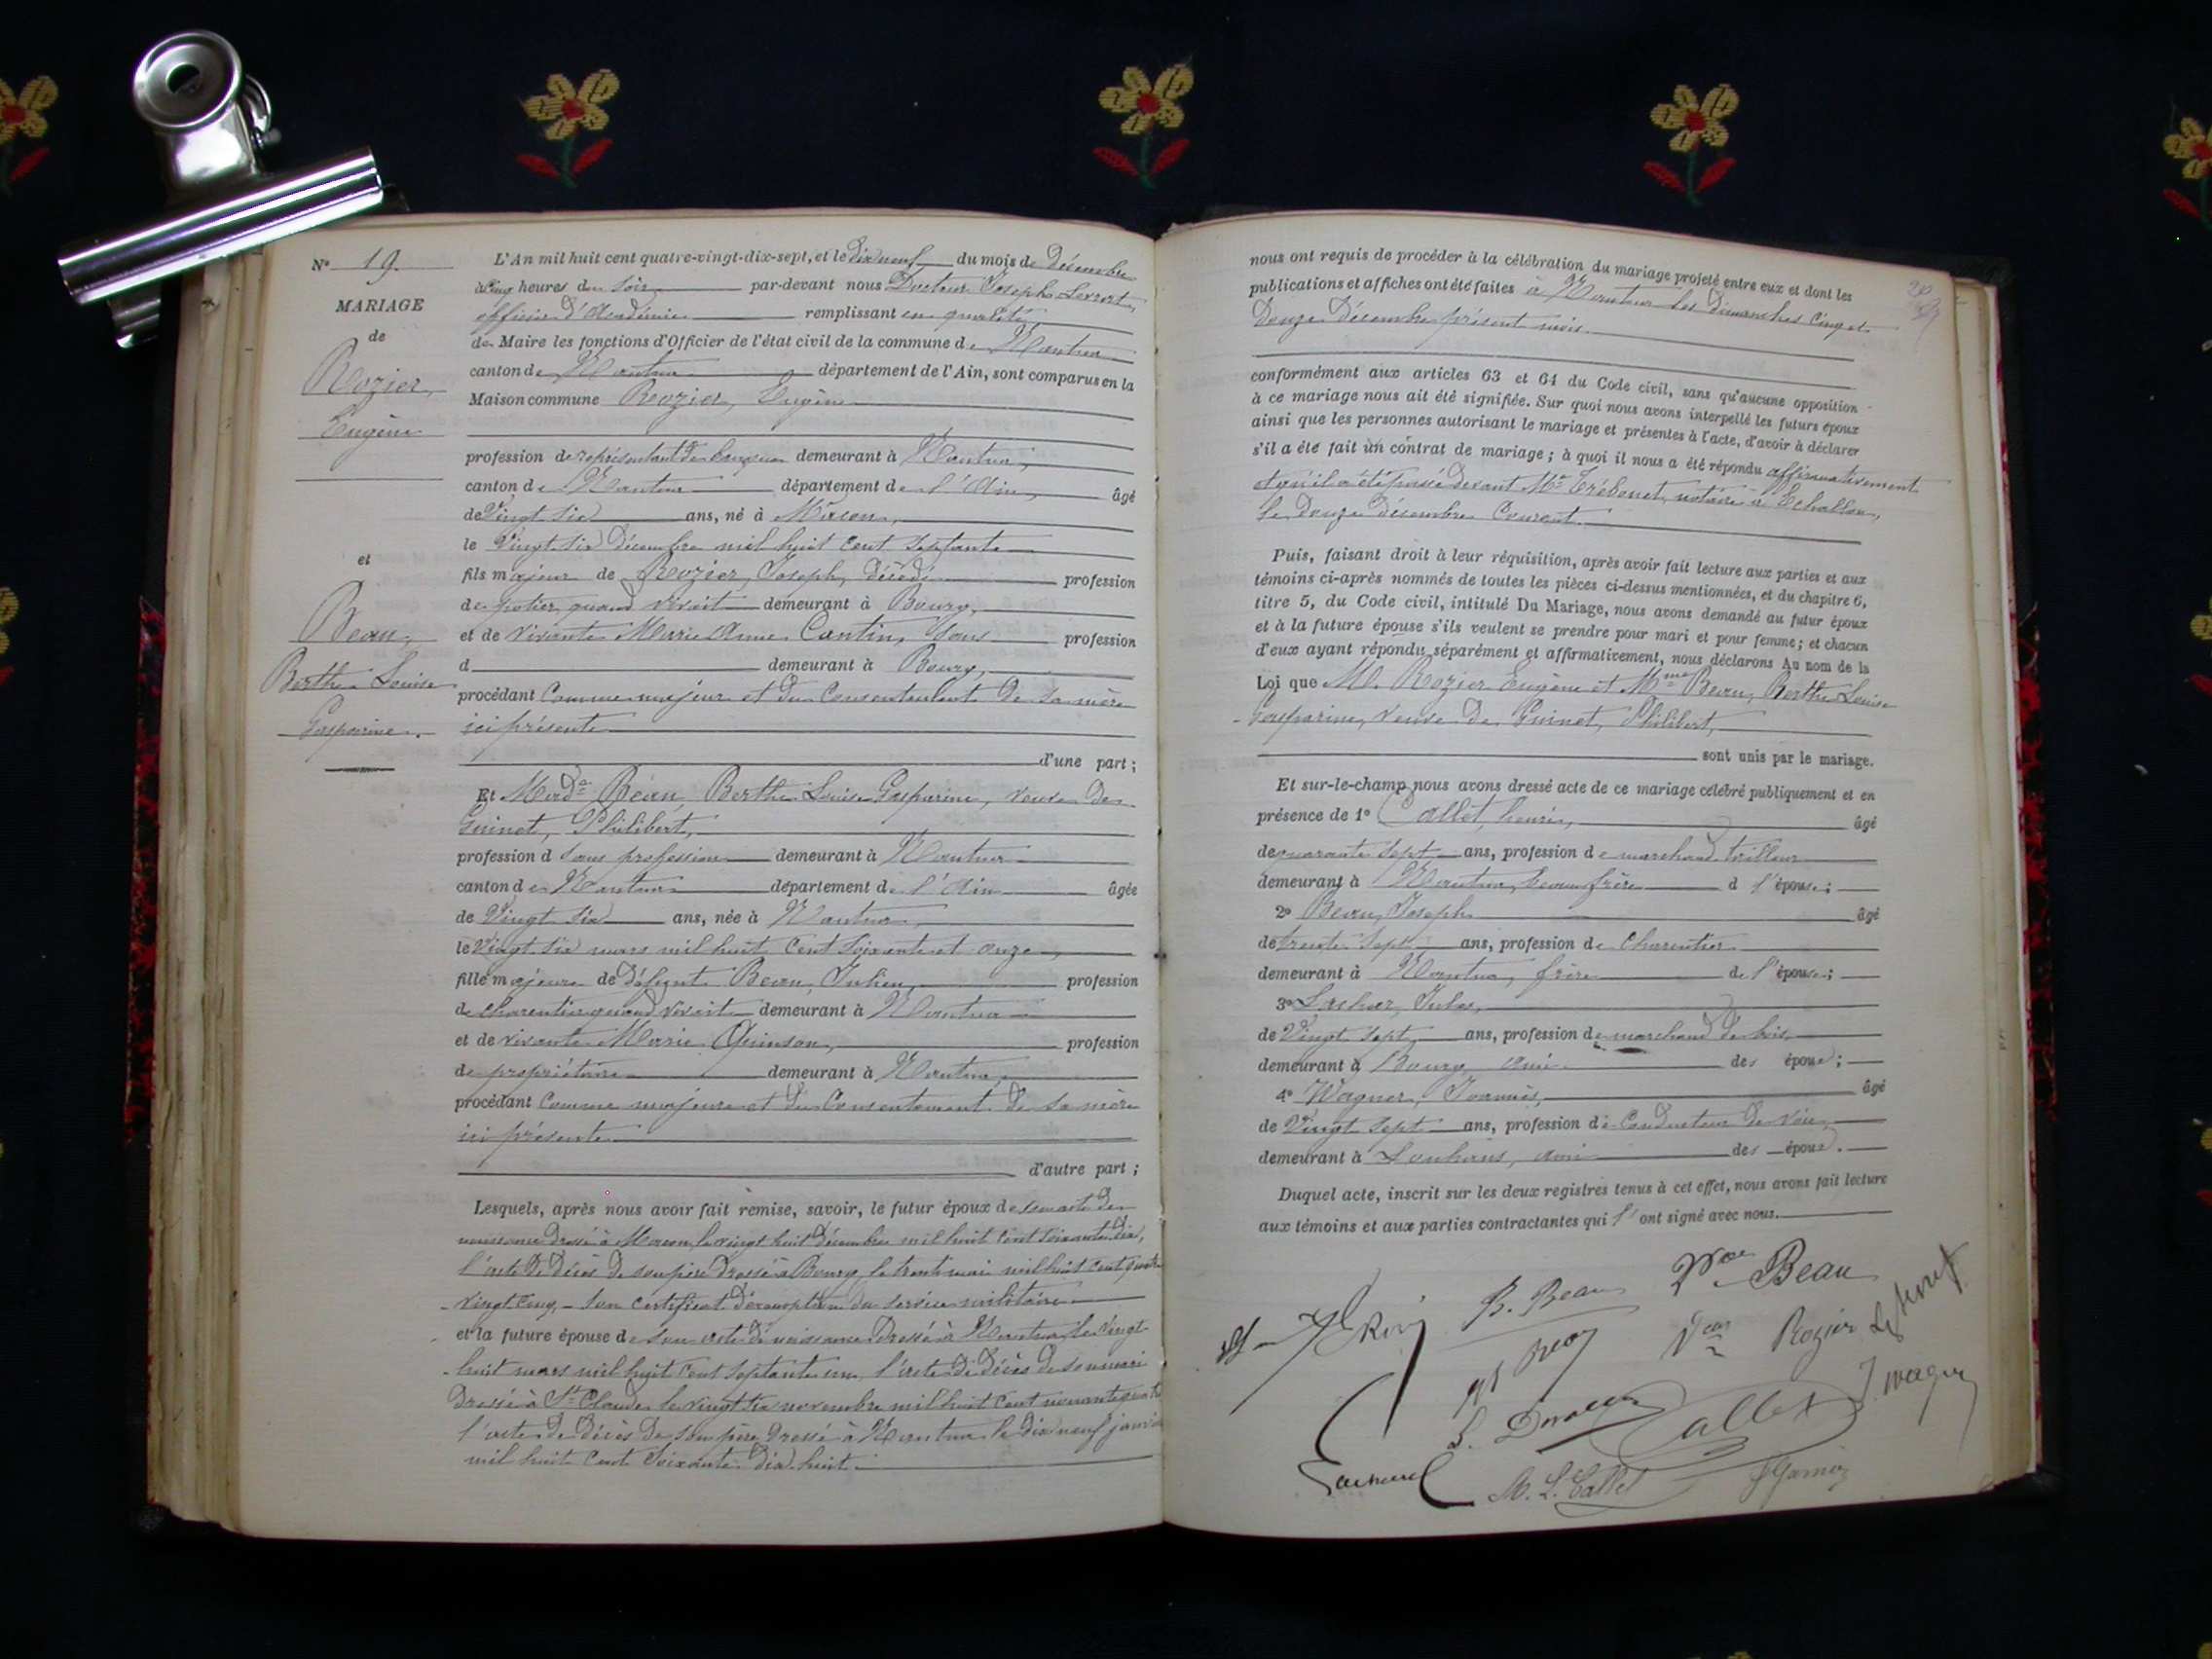 N° 19.
MARIAGE
de
Rozier,
Eugène
et
Beau,
Berthe Louise
Gasparine.
L'An mil huit cent quatre-vingt-dix-sept, et le dix neuf du mois de Décembre
à cinq heures du soir par-devant nous Docteur Joseph
officier d'Académie remplissant en qualité
de Maire les fonctions d'Officier de l'état civil de la commune de Nantua
canton de Nantua département de l'Ain, sont comparus en la
Maison commune Rozier, Eugène
profession de représentant de demeurant à Nantua,
canton de Nantua département de l'Ain, âgé
de Vingt six ans, né à Mâcon,
le Vingt six Décembre mil huit cent septante
fils majeur de Rozier, Joseph, décédé profession
de potier, quand vivait demeurant à Bourg,
et de vivante Marie Anne Cantin, sans profession
d demeurant à Bourg,
procédant comme majeur et du consentement de sa mère
ici présente
d'une part ;
Et Mad.e Beau, Berthe Louise Gasparine, veuve de
Guinet, Philibert,
profession d sans profession demeurant à Nantua
canton de Nantua département de l'Ain âgée
de Vingt six ans, née à Nantua,
le Vingt six mars mil huit cent soixante et onze,
fille majeure de défunt Beau, Julien, profession
de charentier quand vivait demeurant à Nantua
et de vivante Marie Guinson, profession
de propriétaire demeurant à Nantua,
procédant comme majeure et du consentement de sa mère
ici présente
d'autre part ;
Lesquels, après nous avoir fait remise, savoir, le futur époux de son acte de
naissance dressé à Macon, le vingt huit décembre mil huit cent soixante dix,
l'acte de décès de son père dressé à Bourg le trente mai mil huit cent quatre
vingt cinq, - son certificat d'exemption du service militaire
et la future épouse de son acte de naissance dressé à Nantua le vingt
huit mars mil huit cent septante un, l'acte de décès de son mari
dressé à St Claude le vingt six novembre mil huit cent nonante quatre
l'acte de décès de son père dressé à Nantua le dix neuf janvier
mil huit cent soixante dix huit.
nous ont requis de procéder à la célébration du mariage projeté entre eux et dont les
publications et affiches ont été faites à Nantua les Dimanches cinq et
Douze Décembre présent mois.
conformément aux articles 63 et 64 du Code civil, sans qu'aucune opposition
à ce mariage nous ait été signifiée. Sur quoi nous avons interpellé les futurs époux
ainsi que les personnes autorisant le mariage et présentes à l'acte, d'avoir à déclarer
s'il a été fait un contrat de mariage ; à quoi il nous a été répondu affirmativement
et qu'il a été passé devant Me Trébouet, notaire à Echallon,
le Douze Décembre courant.
Puis, faisant droit à leur réquisition, après avoir fait lecture aux parties et aux
témoins ci-après nommés de toutes les pièces ci-dessus mentionnées, et du chapitre 6,
titre 5, du Code civil, intitulé Du Mariage, nous avons demandé au futur époux
et à la future épouse s'ils veulent se prendre pour mari et pour femme ; et chacun
d'eux ayant répondu séparément et affirmativement, nous déclarons Au nom de la
Loi que M. Rozier Eugène et Mme Beau, Berthe Louise
Gasparine, veuve de Guinet, Philibert,
sont unis par le mariage.
Et sur-le-champ nous avons dressé acte de ce mariage célébré publiquement et en
présence de 1° Callet, henri, âgé
de quarante sept ans, profession de marchand tailleur
demeurant à Nantua, beau frère d l'épouse ;
2° Beau, Joseph âgé
de trente sept ans, profession de charentier
demeurant à Nantua, frère de l'épouse ;
3° Jules,
de Vingt sept ans, profession de marchand de bois,
demeurant à Bourg ami des époux ;
4° Wagner, Joannès, âgé
de Vingt sept ans, profession de Conducteur de Voie,
demeurant à Louhans, ami des époux.
Duquel acte, inscrit sur les deux registres tenus à cet effet, nous avons fait lecture
aux témoins et aux parties contractantes qui l' ont signé avec nous.
B. Beau
Vve Beau
Vve Rozier
Callet
J. Wagner
M. L. Callet